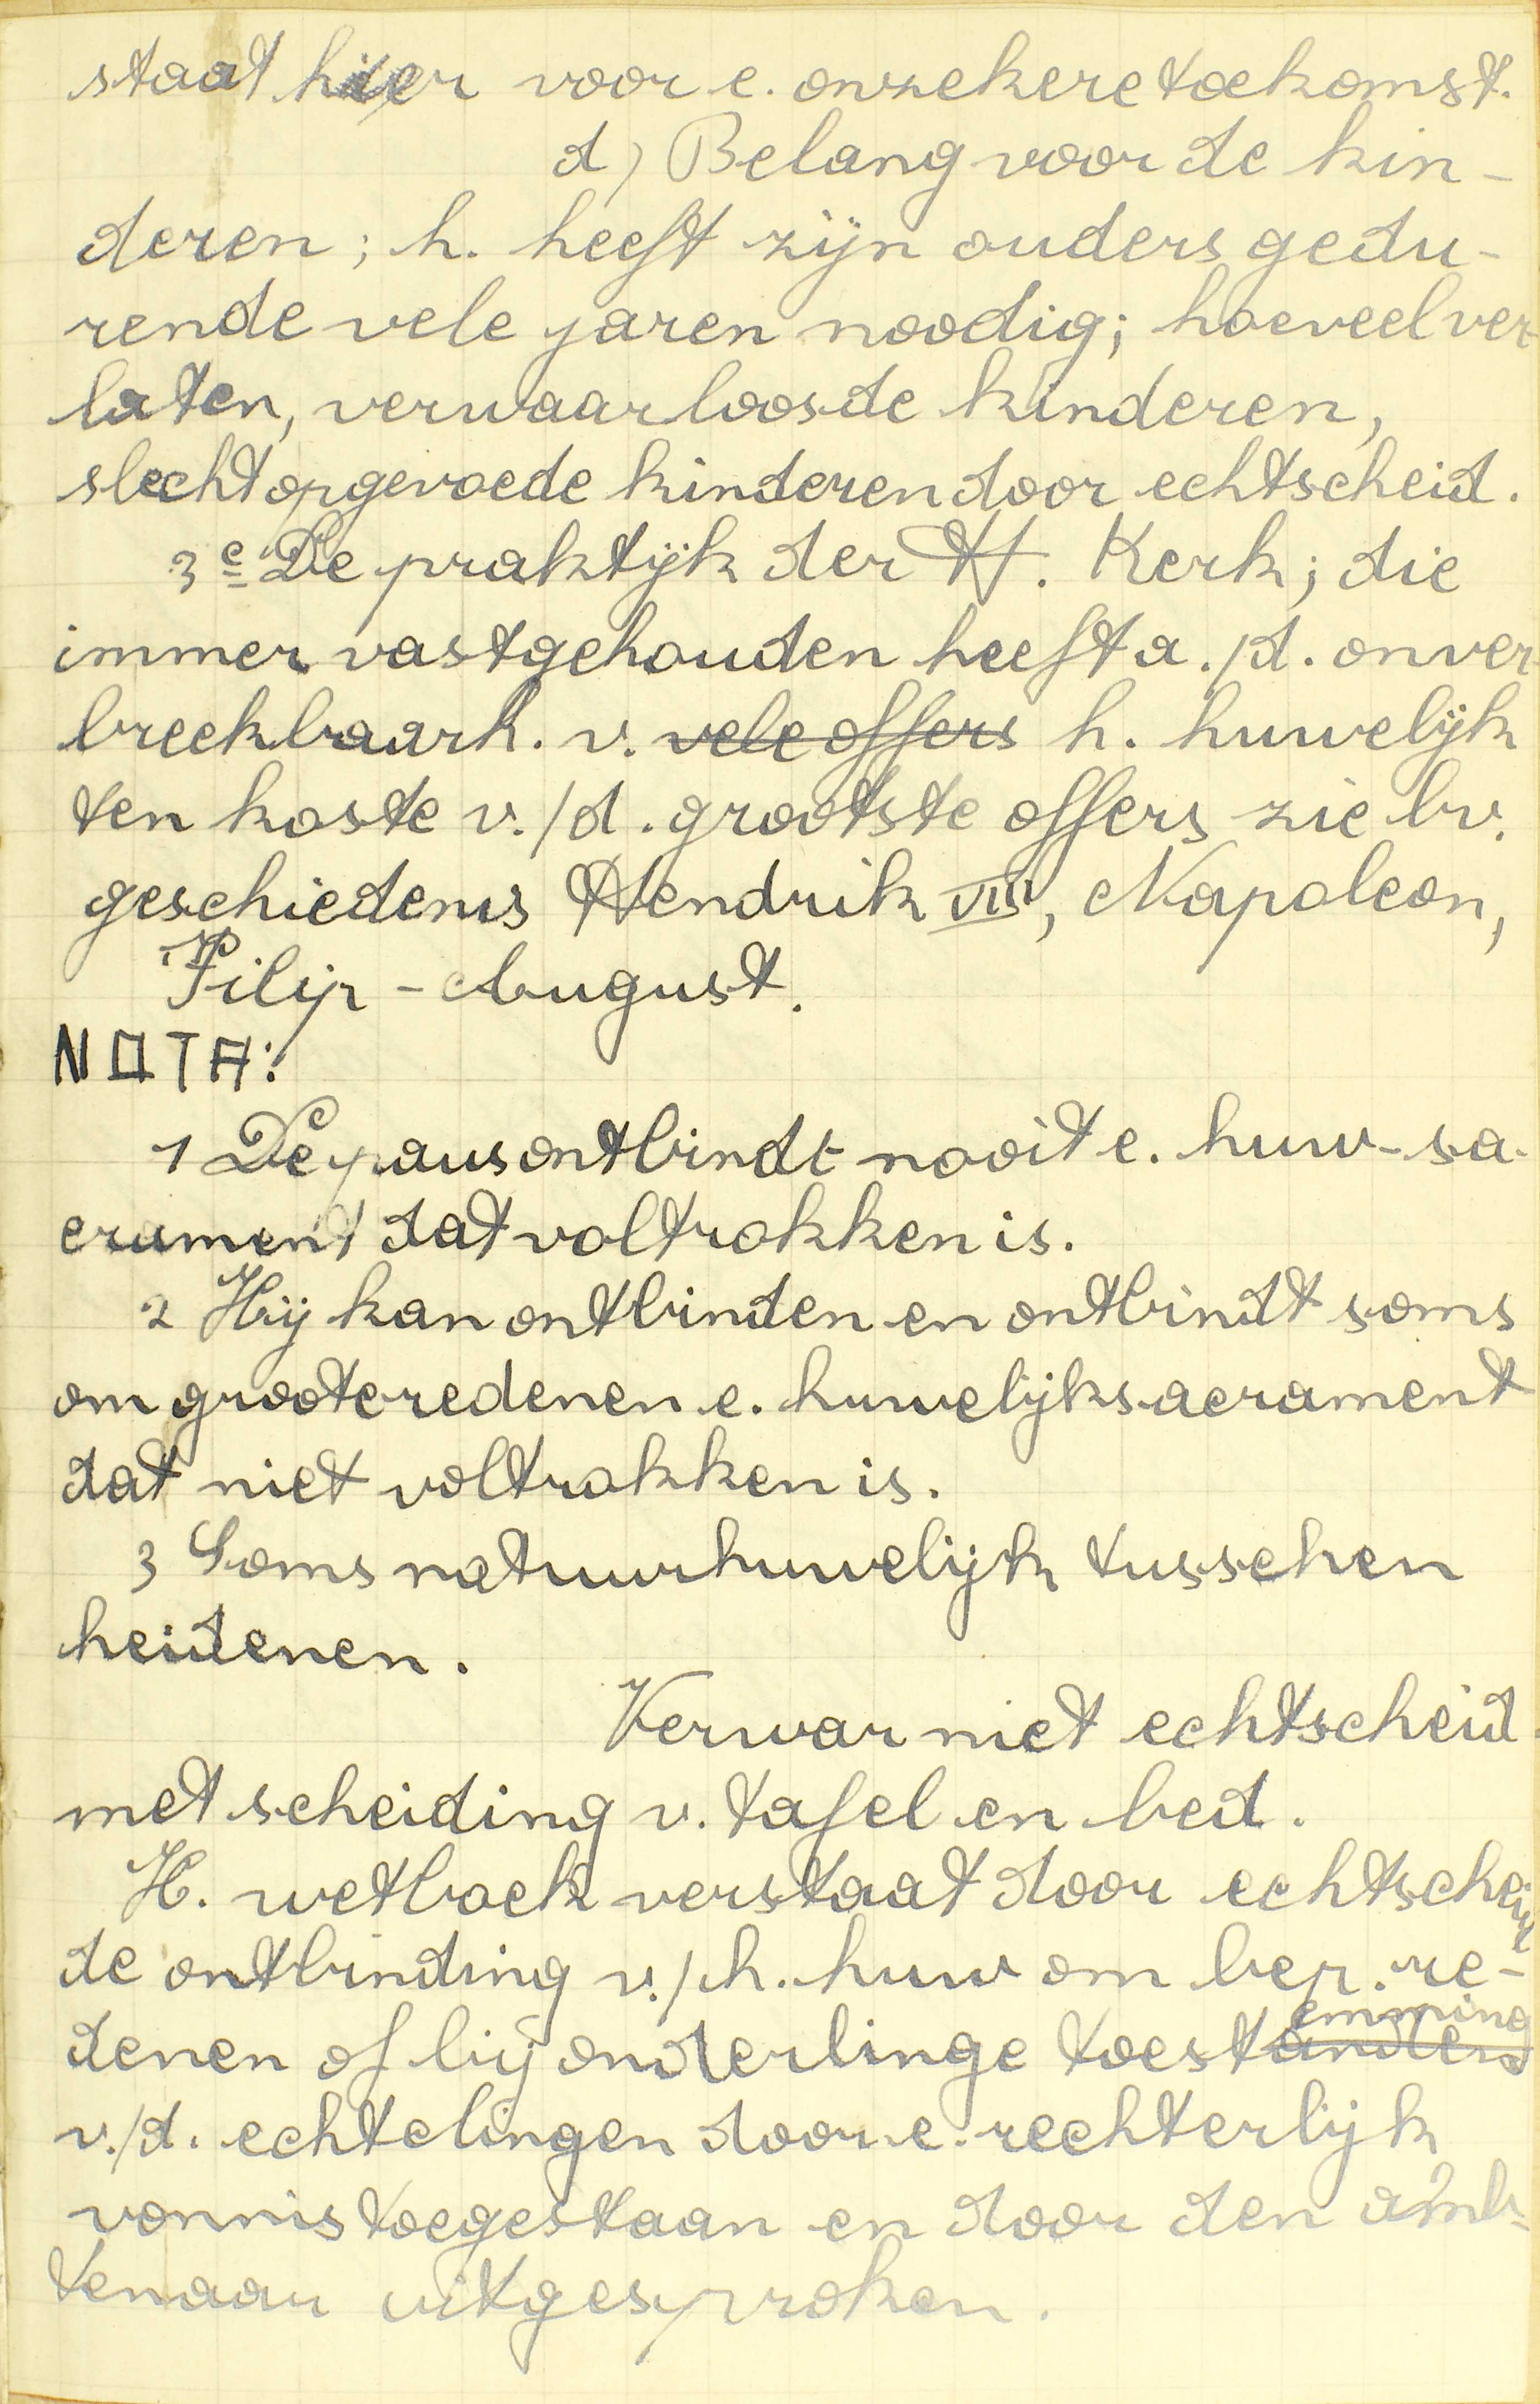 staat hier voor e. onzekere toekomst.
d) Belang voor de kin-
deren; h. heeft zijn ouders gedu-
rende vele jaren noodig; hoeveel ver-
laten, verwaarloosde kinderen,
slecht opgevoede kinderen door echtscheid.
3e De praktijk der H. Kerk; die
immer vastgehouden heeft a./d. onver-
breekbaarh. v. vele offers h. huwelijk
ten koste v./d. grootste offers zie bv.
geschiedenis Hendrik VIII, Napoleon,
Filip-August.
NOTA:
1 De paus ontbindt nooit e. huw-sa-
crament dat voltrokken is.
2 Hij kan ontbinden en ontbindt soms
om groote redenen e. huwelijksacrament
dat niet voltrokken is.
3 Soms natuurhuwelijk tusschen
heidenen.
Verwar niet echtscheid.
met scheiding v. tafel en bed.
H. wetboek verstaat door echtscheid
de ontbinding v./h. huw om bep. re-
emming
denen of bij onderlinge toestanden
v./d. echtelingen door e. rechterlijk
vonnis toegestaan en door den amb-
tenaar uitgesproken.